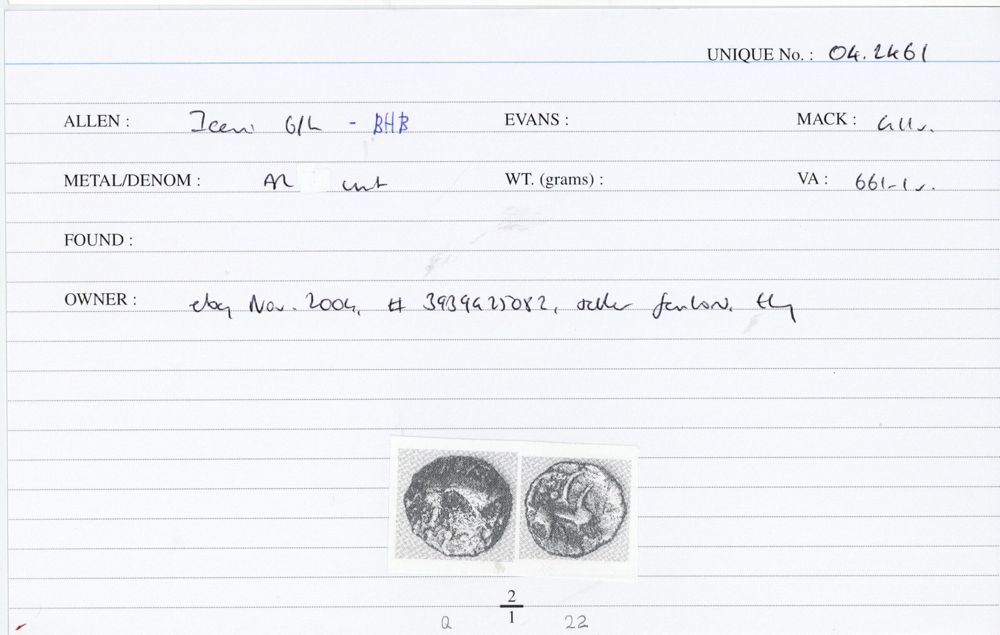 UNIQUE No. : 04.2461
ALLEN : Iceni G/L - BHB EVANS : MACK :
METAL/DENOM : AR unit WT. (grams) : VA : 661-1 v.
FOUND :
OWNER : ebay Nov. 2004, # 3939425082, seller
2
1
Q 22